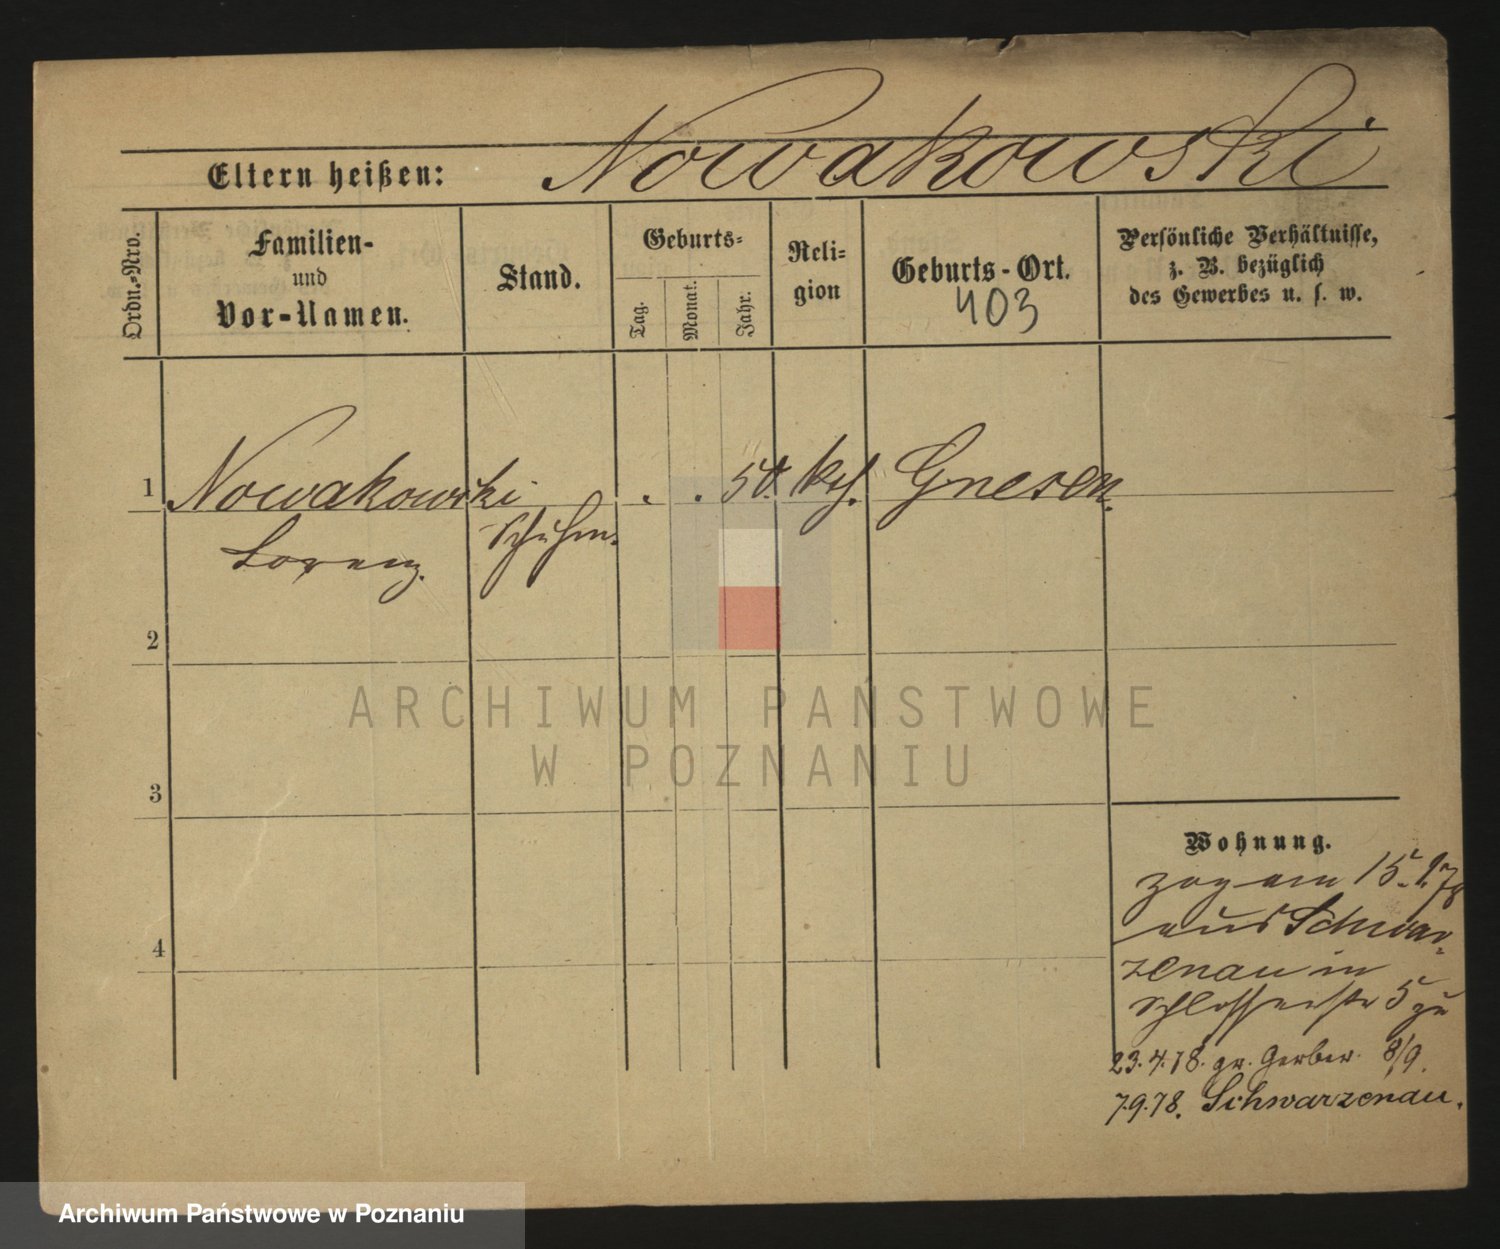 Nowakowski
Eltern heißen:
Ordn.-Nro.
Familien-
und
Vor-Namen.
Stand.
Geburts-
Tag.
Monat.
Jahr.
Reli-
gion
Geburts-Ort.
403
Persönliche Verhältnisse,
z. B. bezüglich
des Gewerbes u. s. w.
1 Nowakowski . . 50. kth. Gnesen.
Lorenz. Schuhm.
2
3
4
Wohnung.
zog am 15. 1. 78
aus Schwar-
zenau in
Schlosserstr 5 zu
23.4.78. gr. Gerber 8/9.
7.9.78. Schwarzenau.
ARCHIWUM PAŃSTWOWE
W POZNANIU
Archiwum Państwowe w Poznaniu